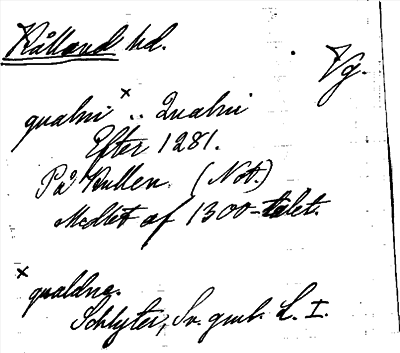 Kålland hd.
Vg.
qualni x .. Qualni
Efter 1281.
På Kullen. (Not.)
Medlet af 1300-talet.
x
qvaldnæ.
Schlyter, Sv. gml. L. I.